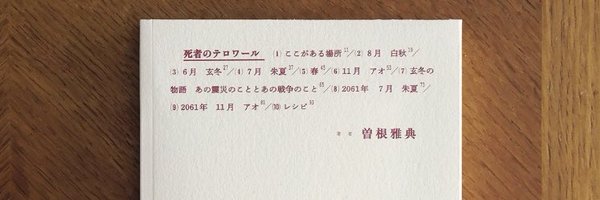 死者のテロワール ⑴ ここがある場所11/⑵ 8月 白秋19/
⑶ 6月 玄冬27/⑷ 7月 朱夏37/⑸ 春45/⑹ 11月 アオ53/⑺ 玄冬の
物語 あの震災のこととあの戦争のこと65/⑻ 2061年 7月 朱夏73/
⑼ 2061年 11月 アオ81/⑽ レシピ93
著者 曽根雅典